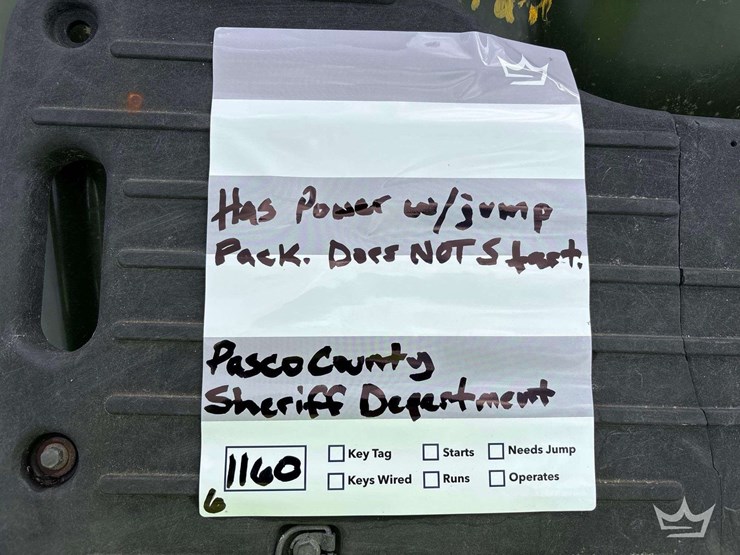 Has Power w/jump
Pack. Does NOT Start.
Pasco County
Sheriff Department
1160
Key Tag
Starts
Needs Jump
Keys Wired
Runs
Operates
6